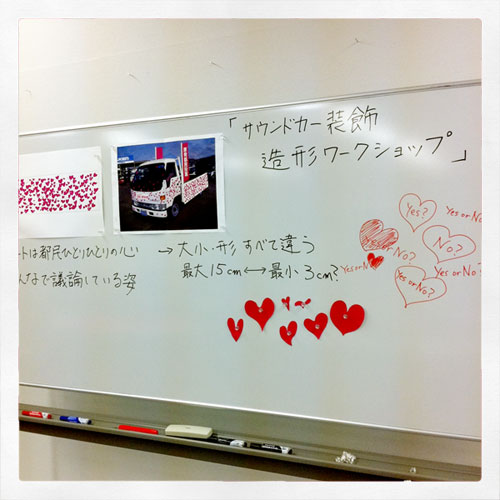 「サウンドカー装飾
造形ワークショップ」
ートは都民ひとりひとりの心
んなで議論している姿
→ 大小・形 すべて違う
最大15cm ⟷ 最小3cm?
Yes?
Yes or No
No?
Yes or No?
No?
Yes or No?
Yes or N